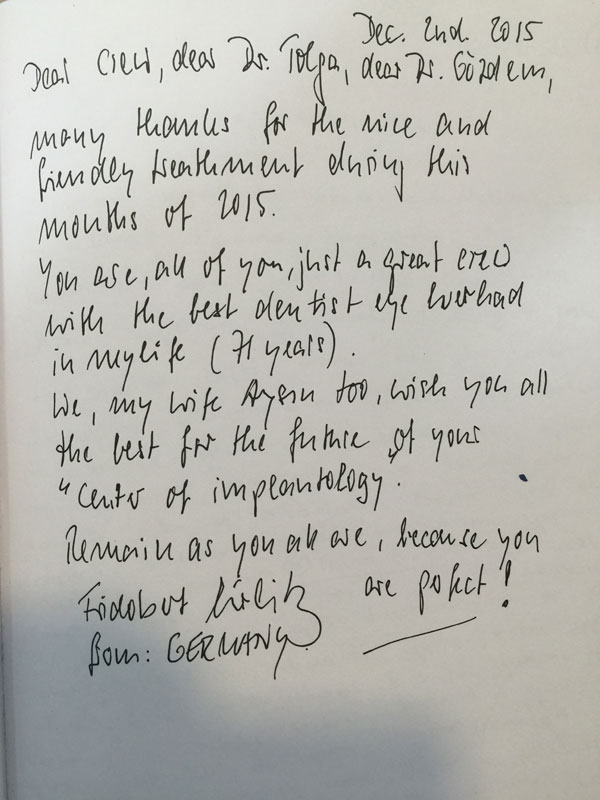 Dec. 2nd. 2015
Dear Crew, dear Dr. Tolga, dear Dr. Gözdem,
many thanks for the nice and
friendly treathment during this
months of 2015.
You are, all of you, just a great crew
with the best dentist I ever had
in my life (71 years).
We, my wife Aysun too, wish you all
the best for the future of your
"Center of implantology".
Remain as you all are, because you
are perfect!
Bonn: GERMANY